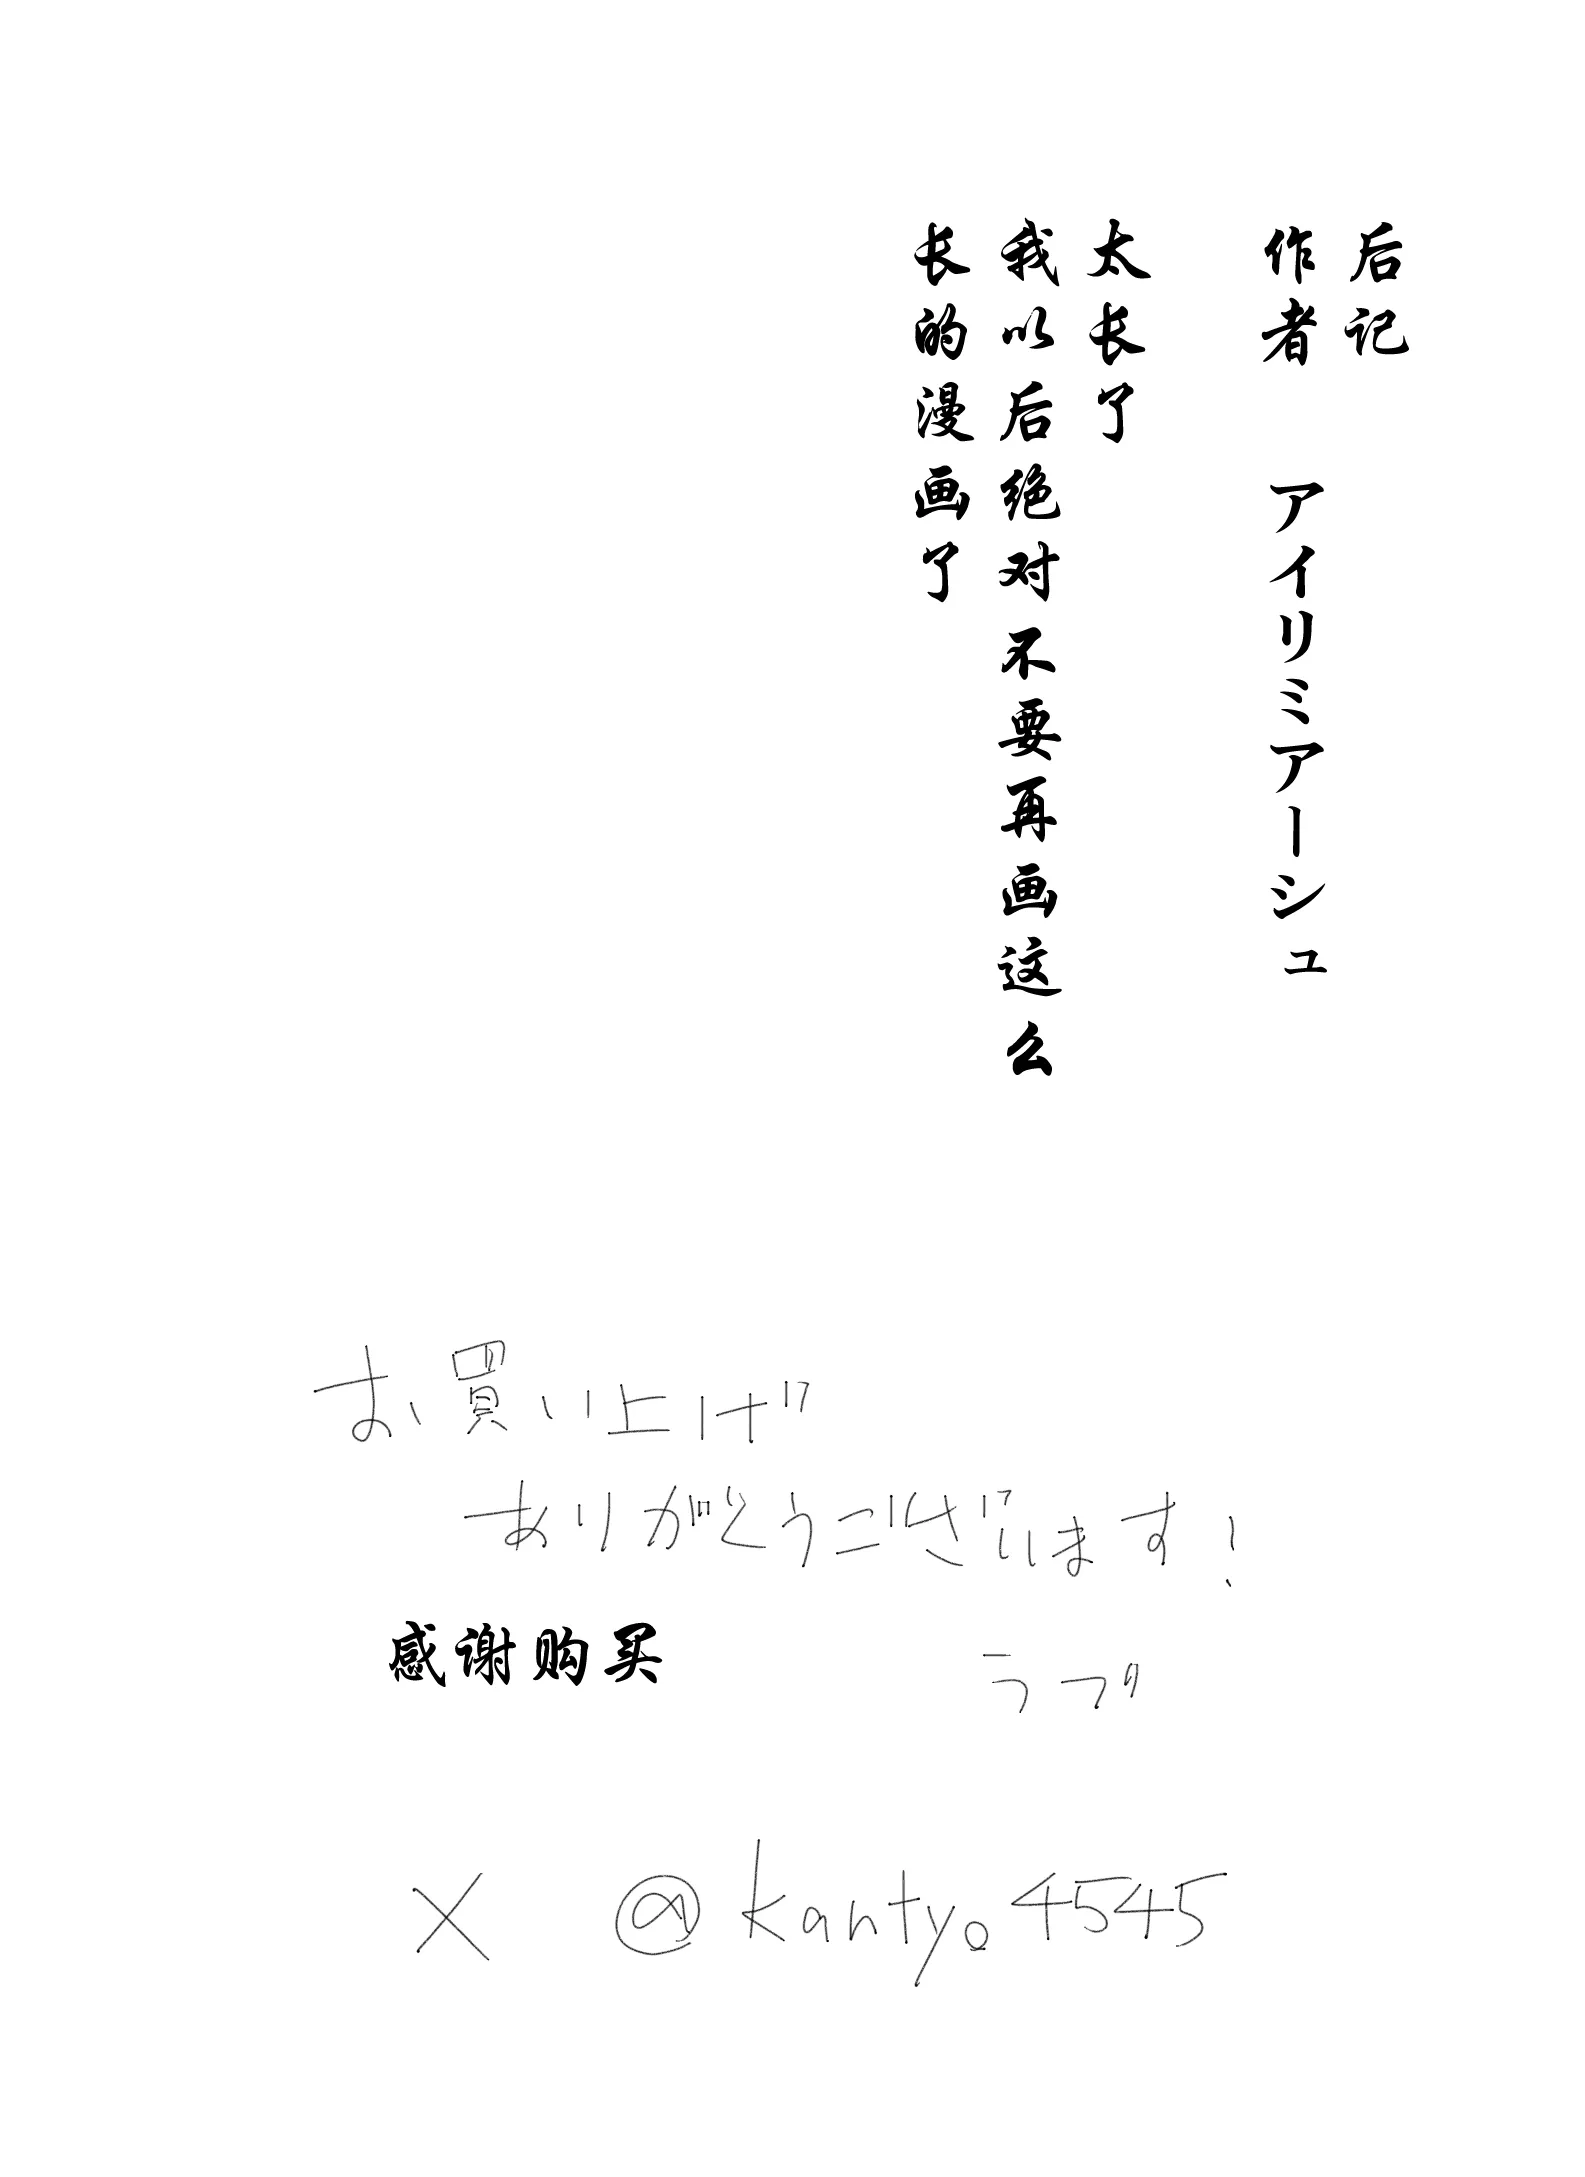 后记
作者　アイリミアーシュ
太长了
我以后绝对不要再画这么
长的漫画了
お買い上げ
ありがとうございます!
感谢购买
ラフグ
X @kantyo4545